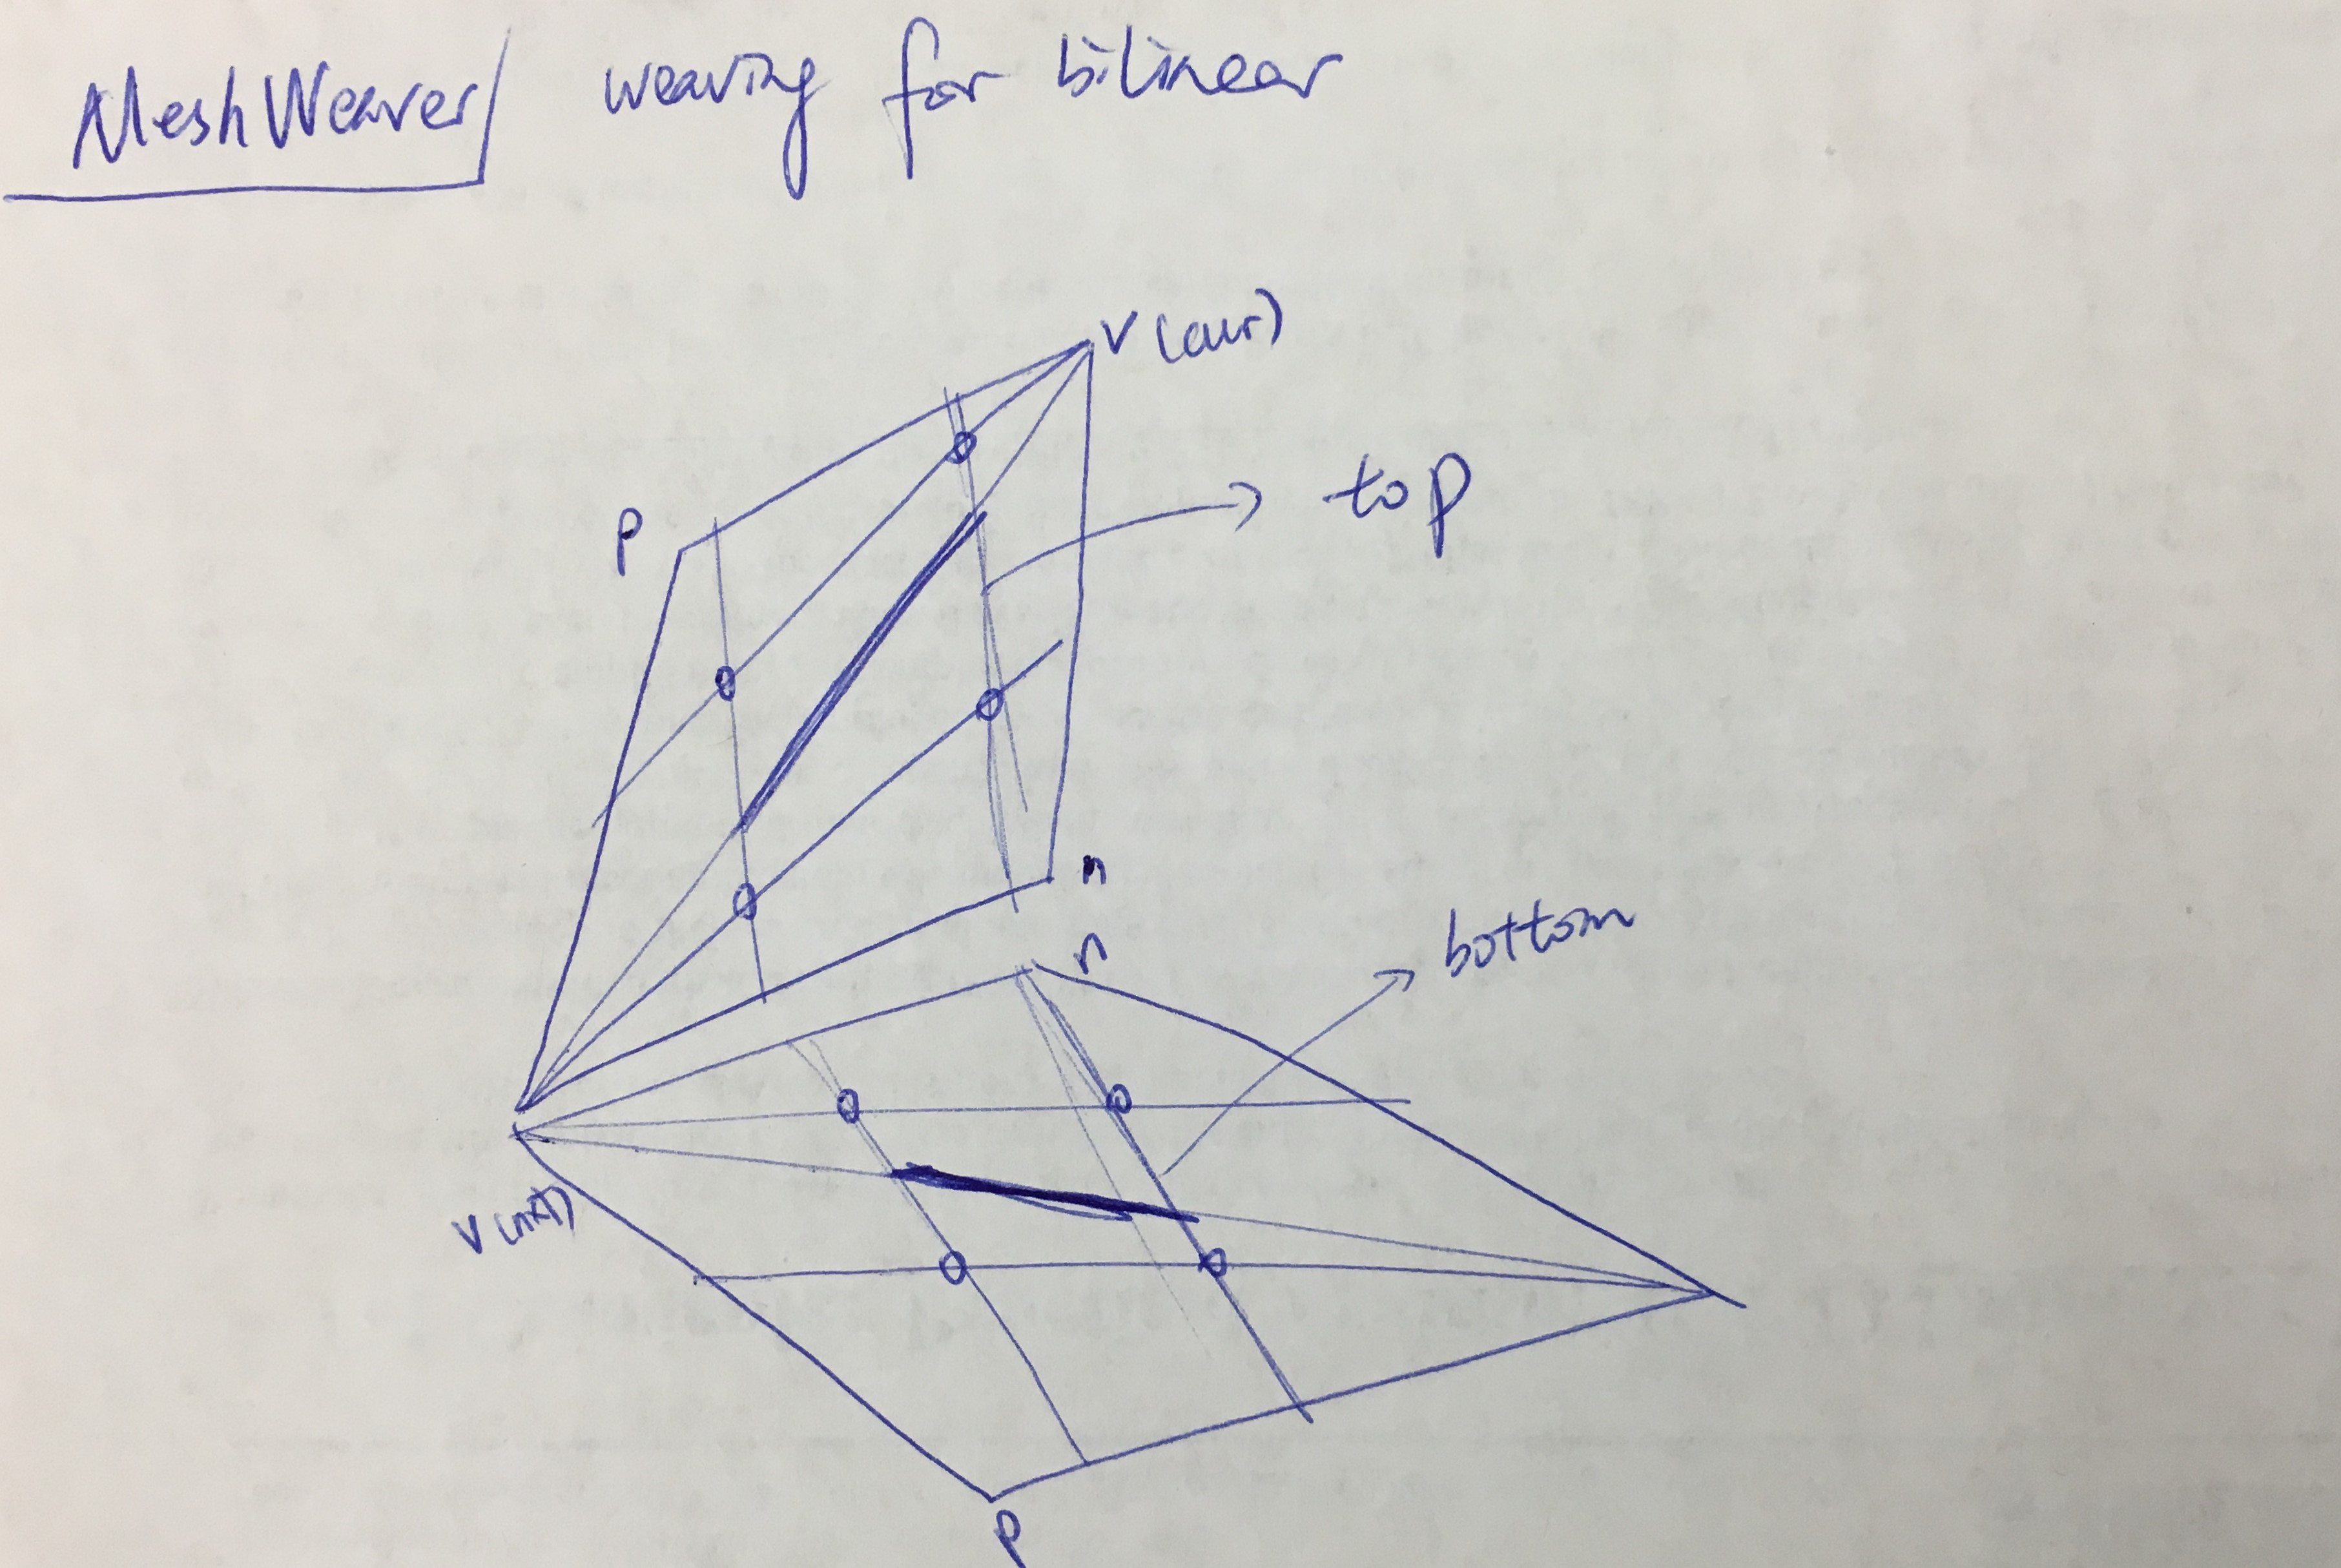 MeshWeaver/ weaving for bilinear
V (cur)
top
p
n
n
bottom
V (nxt)
p